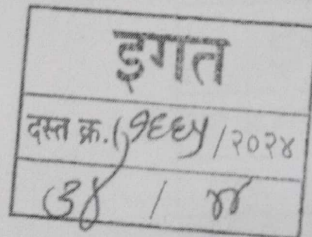 इगत
दस्त क्र. (१६६५/२०२४
३४ / ४४